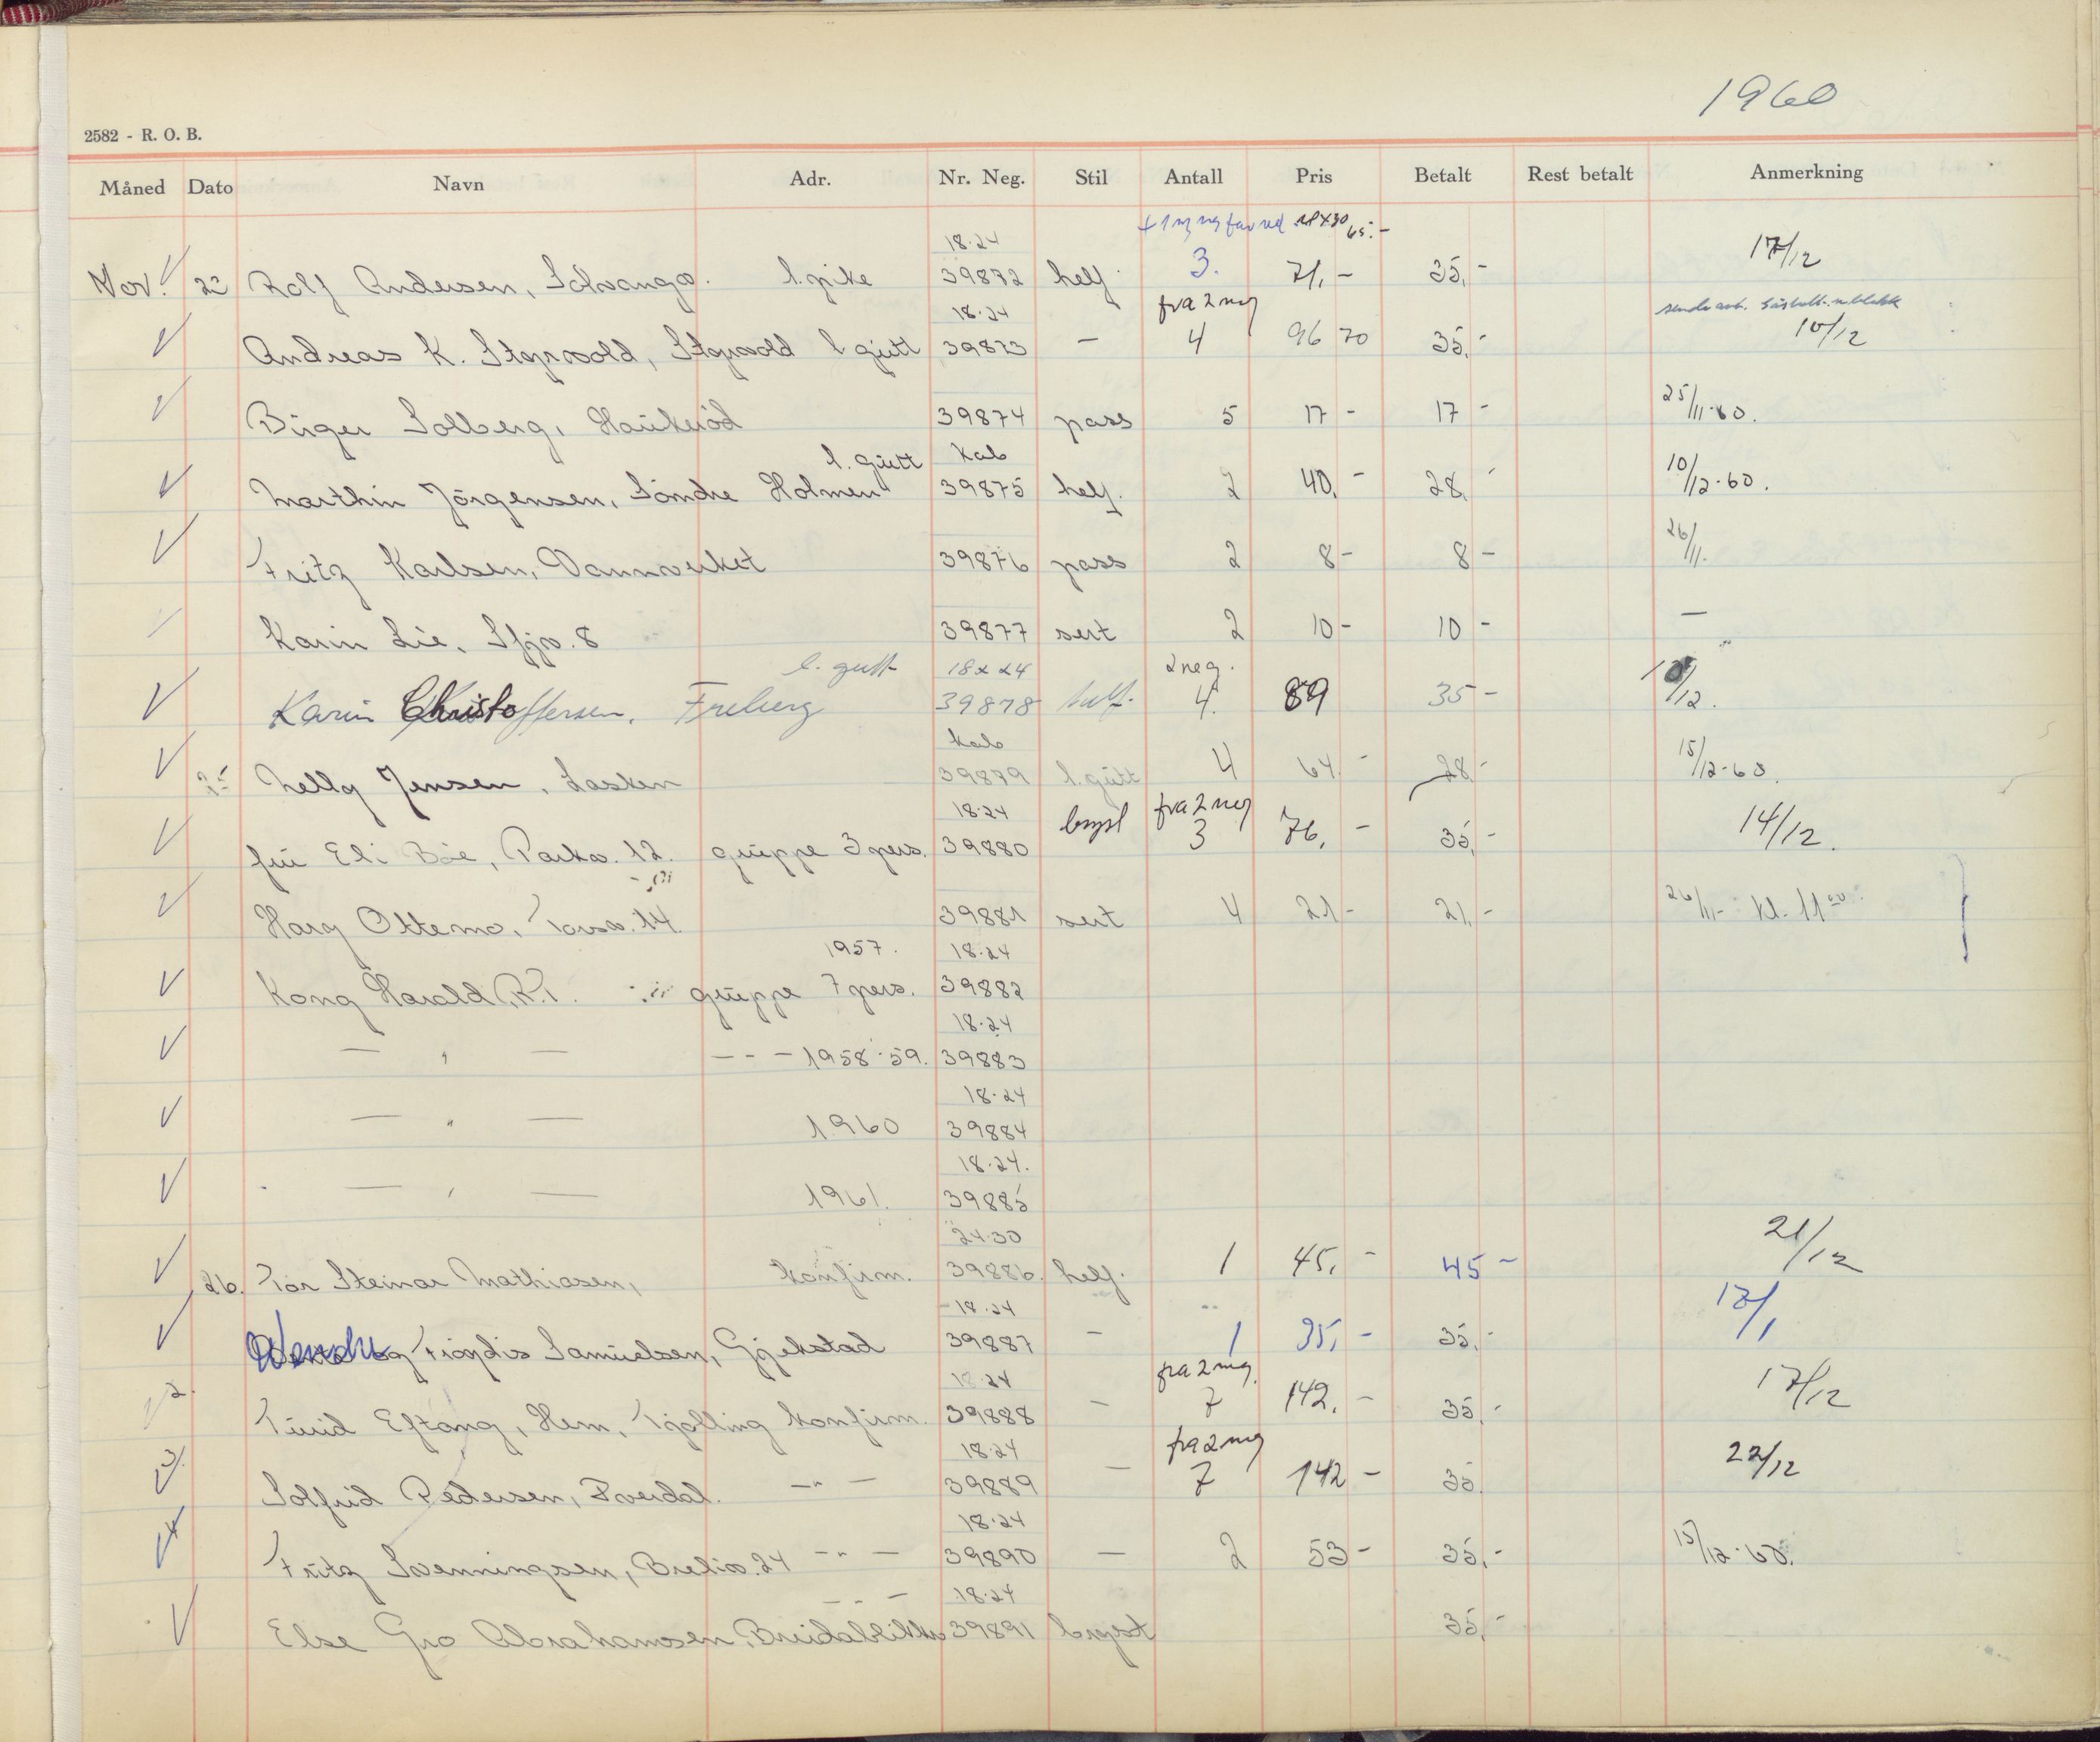 1960
2582 - R. O. B.
Måned Dato Navn Adr. Nr. Neg. Stil Antall Pris Betalt Rest betalt Anmerkning
18x30 65.-
18.24
Nov. 22 Rolf Andersen, l. pike 39872 helf. 3. 71,- 35,- 17/12
18.24 fra 2 neg
Andreas K. l. gutt 39873 — 4 96 70 35,- 10/12
Birger Solberg, Haukerød 39874 pass 5 17 - 17 - 25/11-60.
l. gutt Kab
Marthin Jørgensen, Søndre Holmen 39875 helf. 2 40,- 28,- 10/12-60.
Fritz Karlsen, Vannverket 39876 pass 2 8 - 8 - 26/11.
Karin Lie, 8 39877 sert 2 10 - 10 - —
l. gutt 18x24 2 neg.
Karin Christoffersen, Freberg 39878 helf. 4. 89 35 - /12.
Kab
Nelly Jensen, Lasken 39879 l. gutt 4 64,- 28,- 15/12-60.
18.24 fra 2 neg
fru Eli Bøe, Parkv. 12. gruppe 3 pers. 39880 bryst 3 76,- 35,- 14/12.
Harg Ottemo, Torsv. 14. 39881 sert 4 21 - 21,- 26/11 - kl. 11 00
1957. 18.24
Kong Harald, R.T. gruppe 7 pers. 39882
18.24
— " — - - - 1958-59. 39883
18.24
— " — 1960 39884
18.24.
— " — 1961. 39885
24.30
26. Tor Steinar Mathiasen, konfirm. 39886. helf. 1 45,- 45 - 21/12
18.24
Wenche og Fiordis Samuelsen, Gjekstad 39887 — 1 35,- 35,- 17/1
18.24 fra 2 neg.
2. Turid Eftang, Hem, Tjølling konfirm. 39888 — 7 142,- 35,- 17/12
18.24 fra 2 neg
3. Solfrid Pedersen, Fverdal. — " — 39889 — 7 142 - 35 22/12
18.24
4 Fritz Svenningsen, Breliv. 24 — " — 39890 — 2 53 - 35,- 15/12-60.
— " — 18.24
Else Gro Abrahamsen, Breidablikkv 39891 bryst 35,-